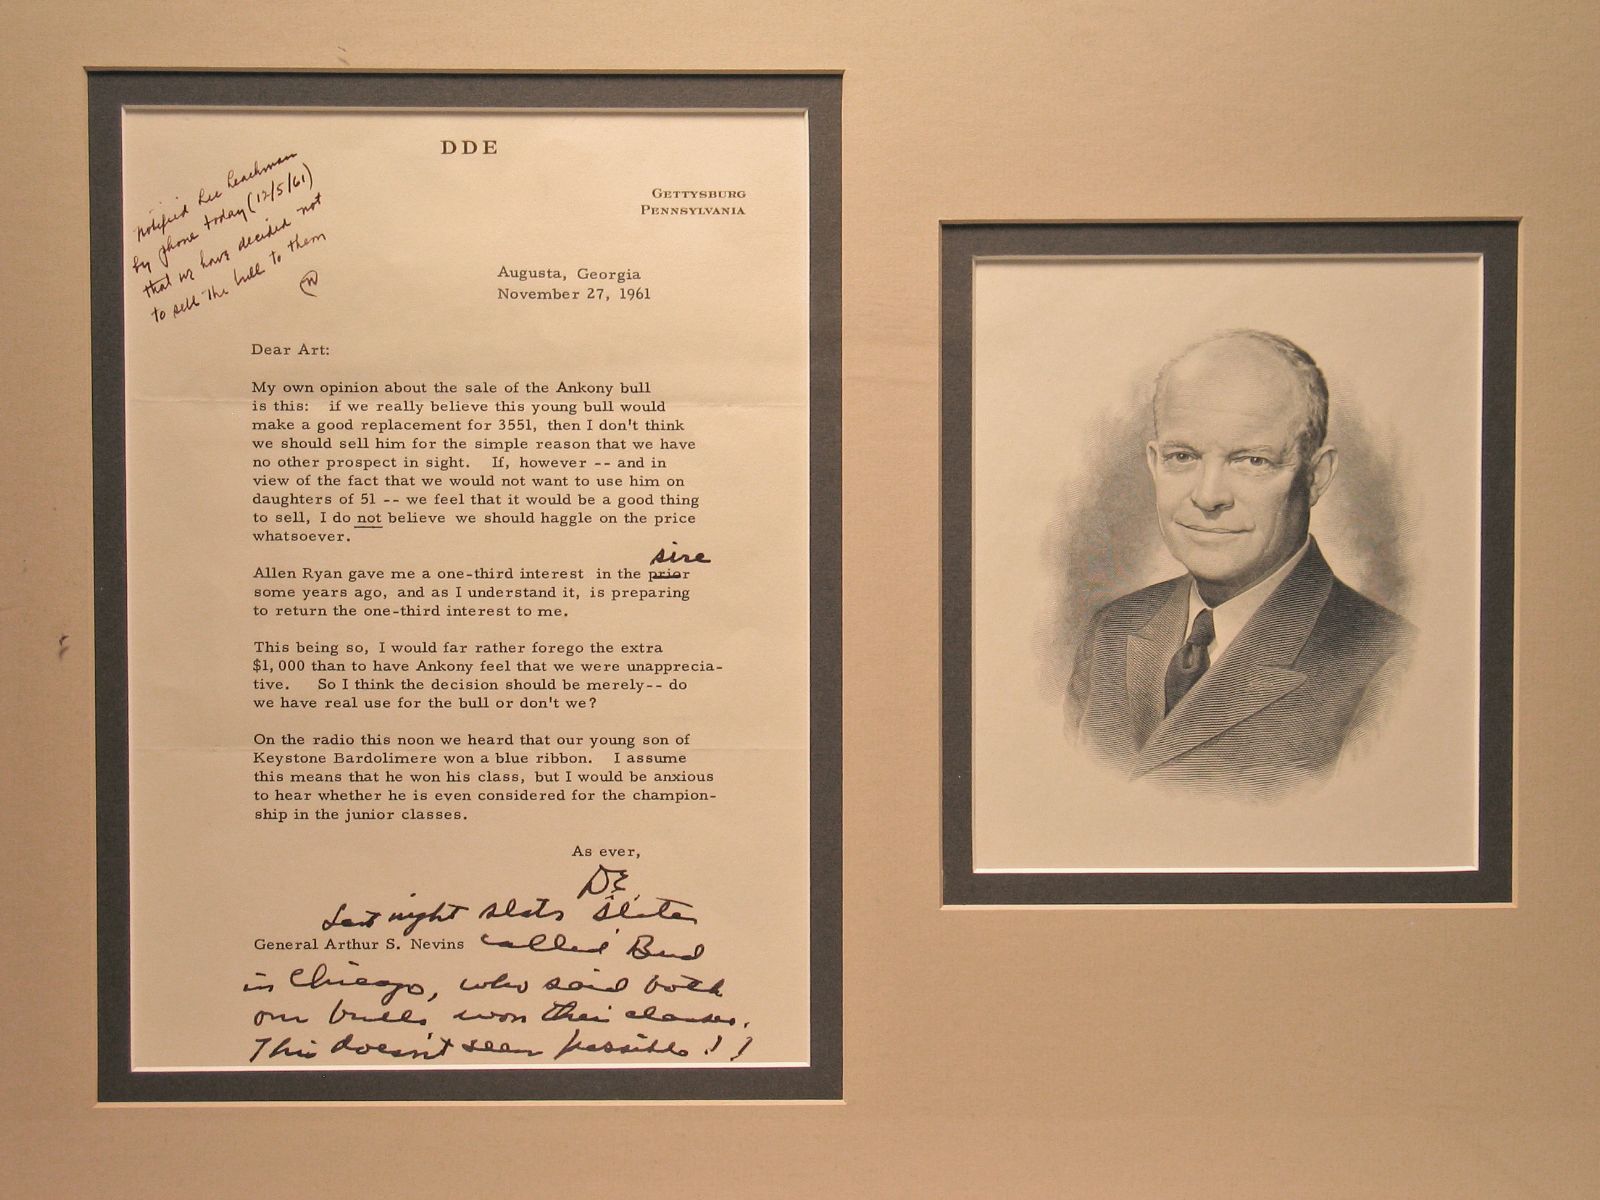 DDE
GETTYSBURG
PENNSYLVANIA
Notified Lee Leachman
by phone today (12/5/61)
that we have decided not
to sell the bull to them
N
Augusta, Georgia
November 27, 1961
Dear Art:
My own opinion about the sale of the Ankony bull
is this: if we really believe this young bull would
make a good replacement for 3551, then I don't think
we should sell him for the simple reason that we have
no other prospect in sight. If, however -- and in
view of the fact that we would not want to use him on
daughters of 51 -- we feel that it would be a good thing
to sell, I do not believe we should haggle on the price
whatsoever.
sire
Allen Ryan gave me a one-third interest in the prior
some years ago, and as I understand it, is preparing
to return the one-third interest to me.
This being so, I would far rather forego the extra
$1,000 than to have Ankony feel that we were unapprecia-
tive. So I think the decision should be merely-- do
we have real use for the bull or don't we?
On the radio this noon we heard that our young son of
Keystone Bardolimere won a blue ribbon. I assume
this means that he won his class, but I would be anxious
to hear whether he is even considered for the champion-
ship in the junior classes.
As ever,
DE
Last night Slats Slater
General Arthur S. Nevins called Bud
in Chicago, who said both
our bulls won their classes.
This doesn't seem possible!!